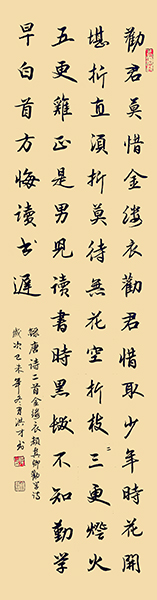 勸君莫惜金縷衣勸君惜取少年時花開
堪折直須折莫待無花空折枝三更燈火
五更雞正是男兒讀書時黑髮不知勤学
早白首方悔讀书遲
録唐诗二首金缕衣颜真卿勤学诗
歲次乙未年冬月洪才书